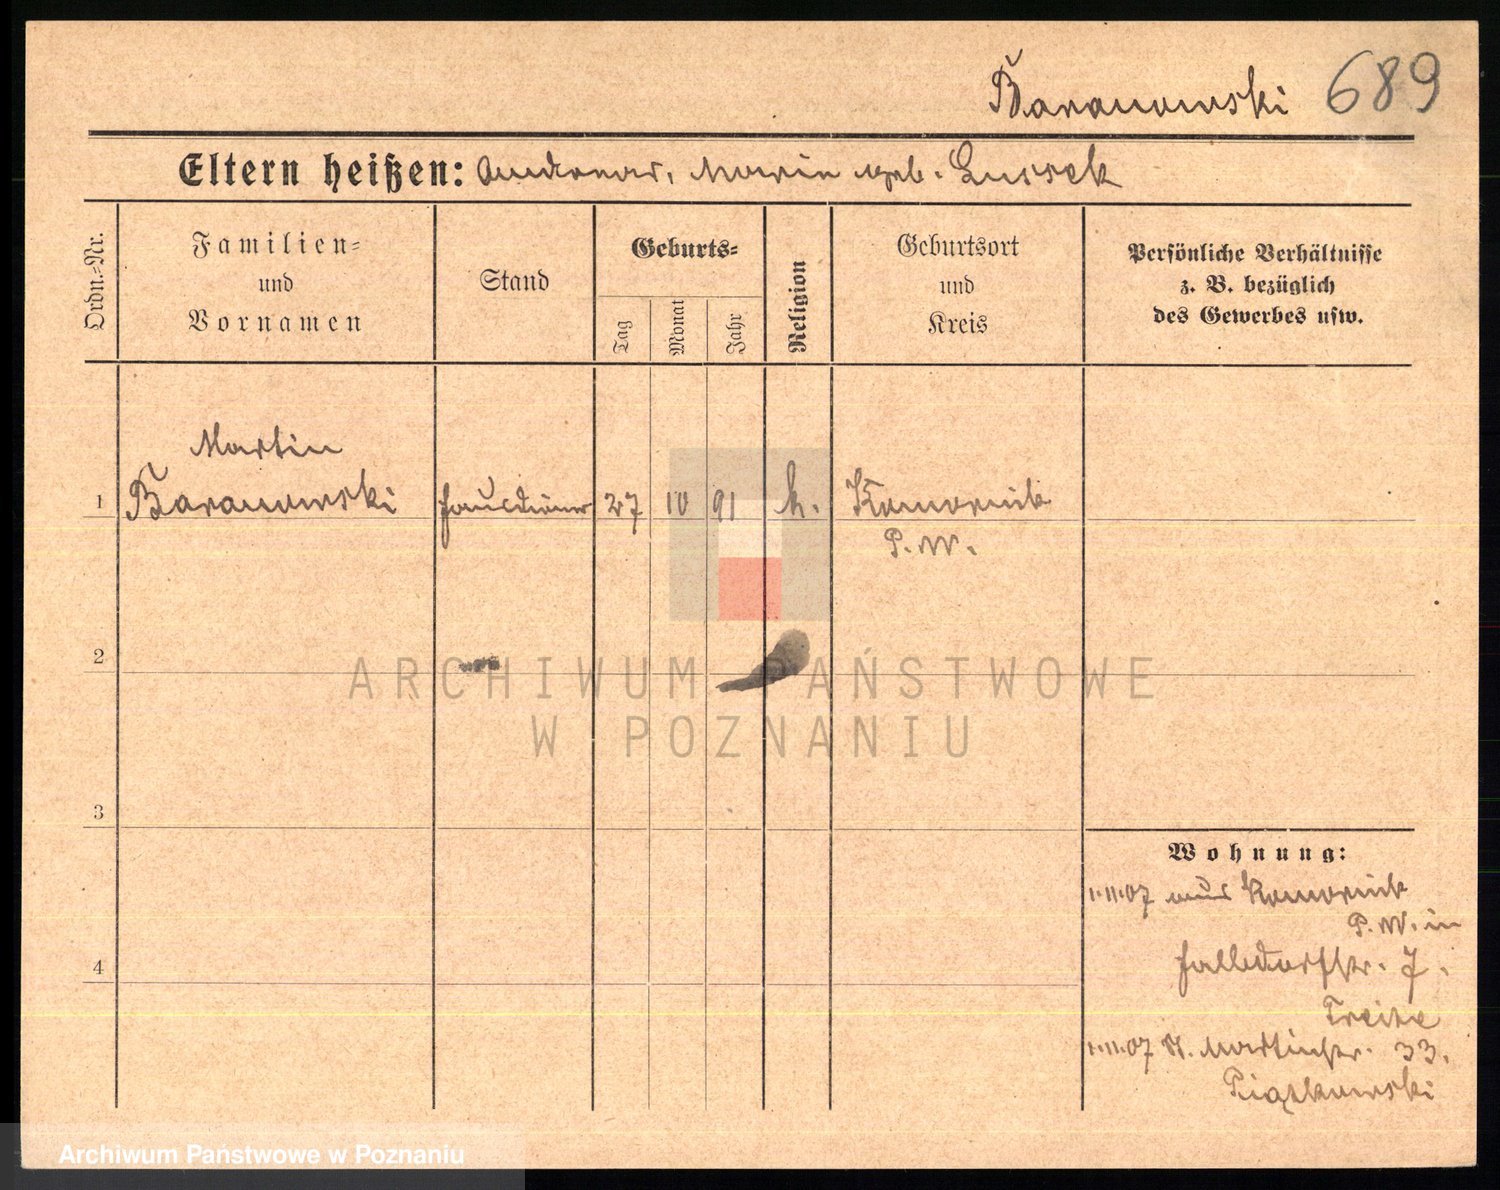 Baranowski 689
Eltern heißen: Andreas, Marie geb. Lussek
Ordn.-Nr.
Familien-
und
Vornamen
Stand
Geburts-
Tag
Monat
Jahr
Religion
Geburtsort
und
Kreis
Persönliche Verhältnisse
z. B. bezüglich
des Gewerbes usw.
Martin
1 Baranowski Hausdiener 27 10 91 k. Komornik
P.W.
2
3
4
Wohnung:
1.11.07 aus Komornik
P.W. in
Halbdorfstr. 7.
1.11.07 St. Martinstr. 33.
Piątkowski
ARCHIWUM PAŃSTWOWE
W POZNANIU
Archiwum Państwowe w Poznaniu